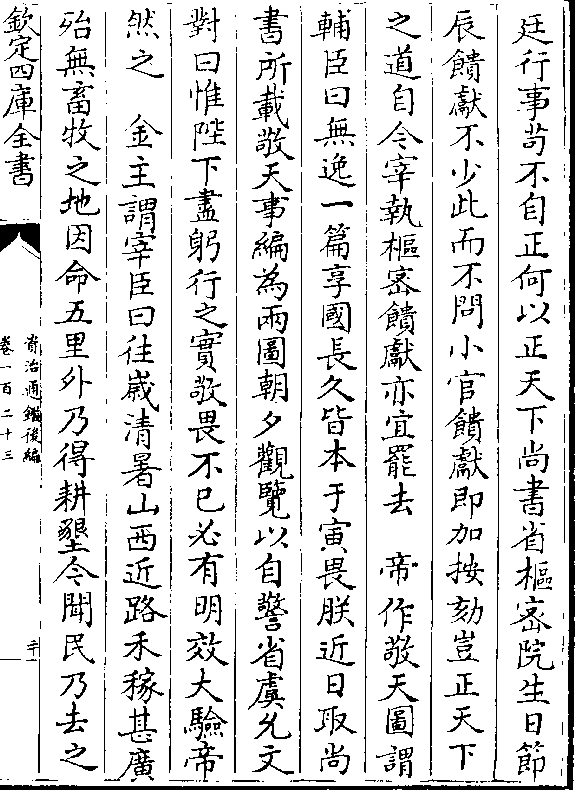 廷行事苟不自正何以正天下尚書省樞密院生日節
辰饋獻不少此而不問小官饋獻即加按劾豈正天下
之道自今宰執樞密饋獻亦宜罷去　帝作敬天圖謂
輔臣曰無逸一篇享國長久皆本于寅畏朕近日取尚
書所載敬天事編為兩圖朝夕觀覽以自警省虞允文
對曰惟陛下盡躬行之實敬畏不已必有明效大驗帝
然之　金主謂宰臣曰往嵗清暑山西近路禾稼甚廣
殆無畜牧之地因命五里外乃得耕墾今聞民乃去之
欽定四庫全書
資治通鑑後編
卷一百二十三
二十